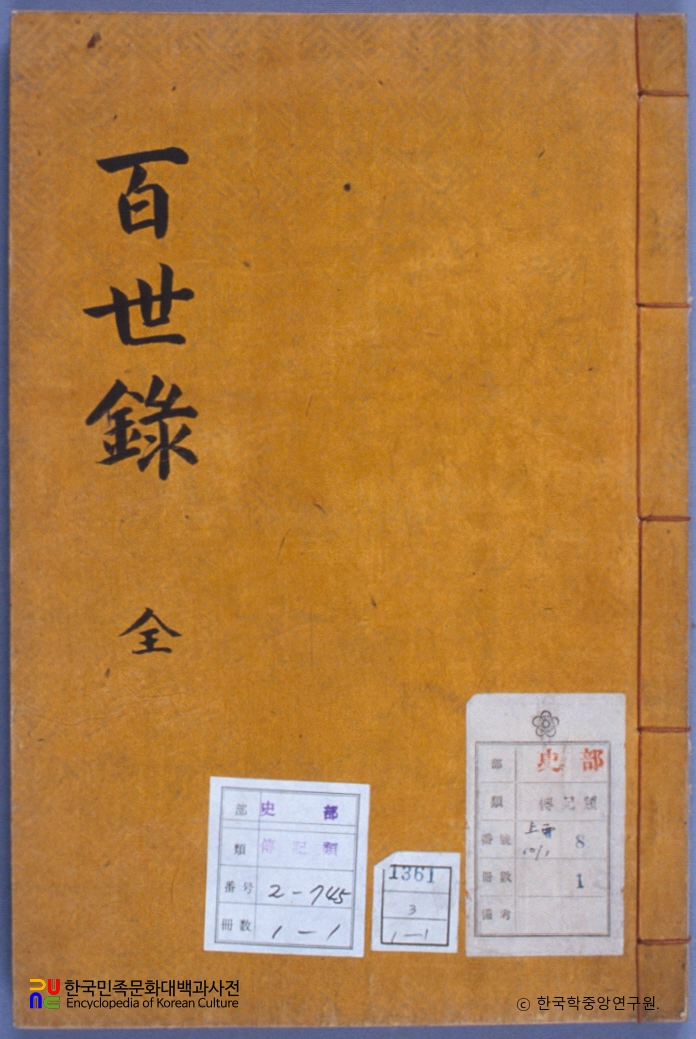 百世錄
全
部 史部
類 傳記類
番号 2-745
冊数 1-1
1361
3
1-1
部 史部
類 傳記類
番號 8
冊數 1
備考
한국민족문화대백과사전
Encyclopedia of Korean Culture
ⓒ 한국학중앙연구원.